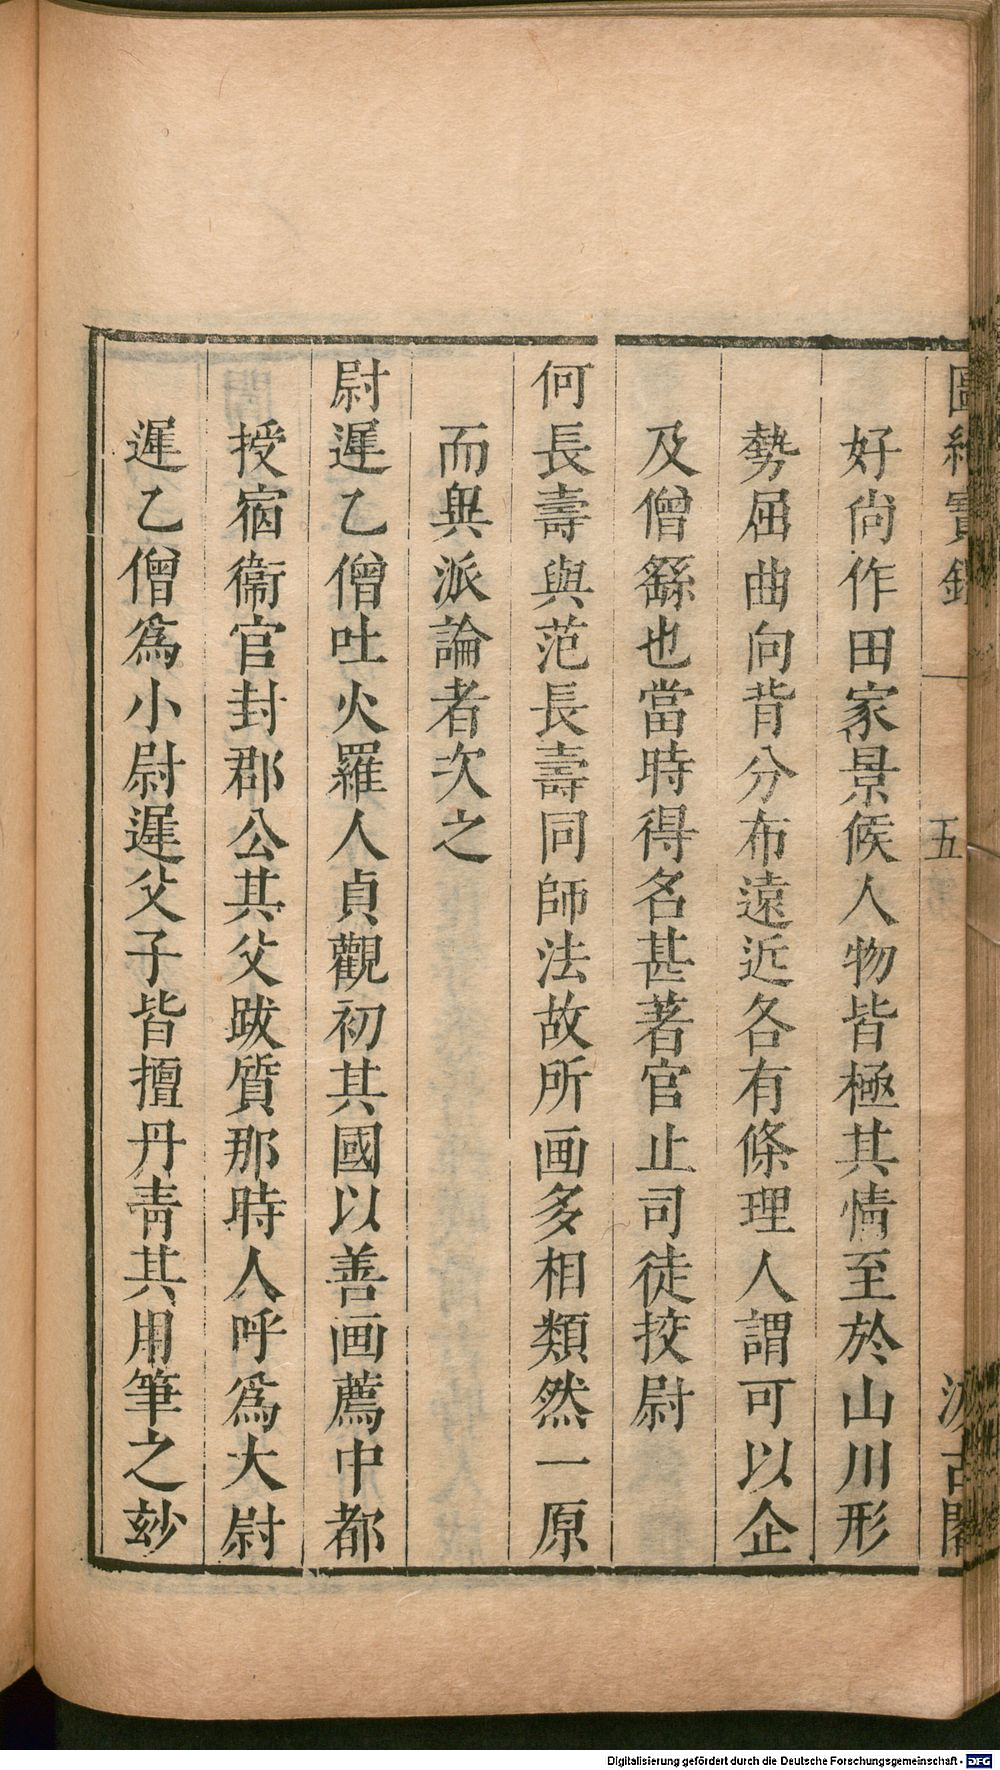 圖繪寶鑑 五 汲古閣
好尚作田家景候人物皆極其情至於山川形
勢屈曲向背分布遠近各有條理人謂可以企
及僧繇也當時得名甚著官止司徒挍尉
何長壽與范長壽同師法故所画多相類然一原
而異派論者次之
尉遲乙僧吐火羅人貞觀初其國以善画薦中都
授宿衞官封郡公其父跋質那時人呼爲大尉
遲乙僧爲小尉遲父子皆擅丹靑其用筆之玅
Digitalisierung gefördert durch die Deutsche Forschungsgemeinschaft - DFG